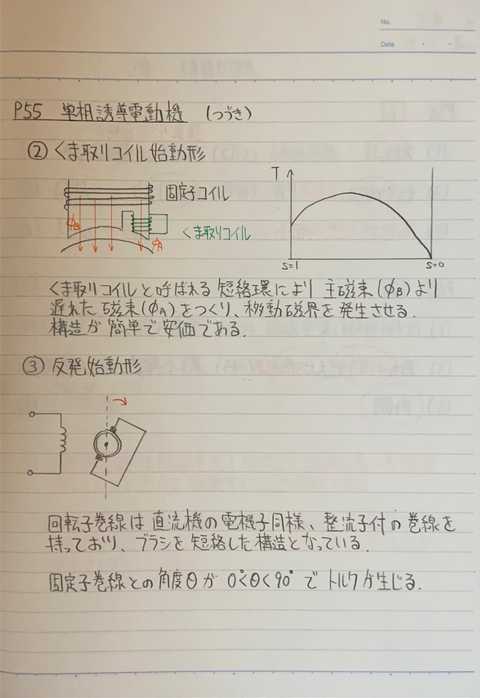 No.
Date
P55 単相誘導電動機 (つづき)
② くま取りコイル始動形
固定子コイル
くま取りコイル
ΦB
ΦA
T
S=1
S=0
くま取りコイルと呼ばれる短絡環により主磁束(ΦB)より
遅れた磁束(ΦA)をつくり、移動磁界を発生させる.
構造が簡単で安価である.
③ 反発始動形
回転子巻線は直流機の電機子同様、整流子付の巻線を
持っており、ブラシを短絡した構造となっている.
固定子巻線との角度θが 0°<θ<90° でトルクが生じる.